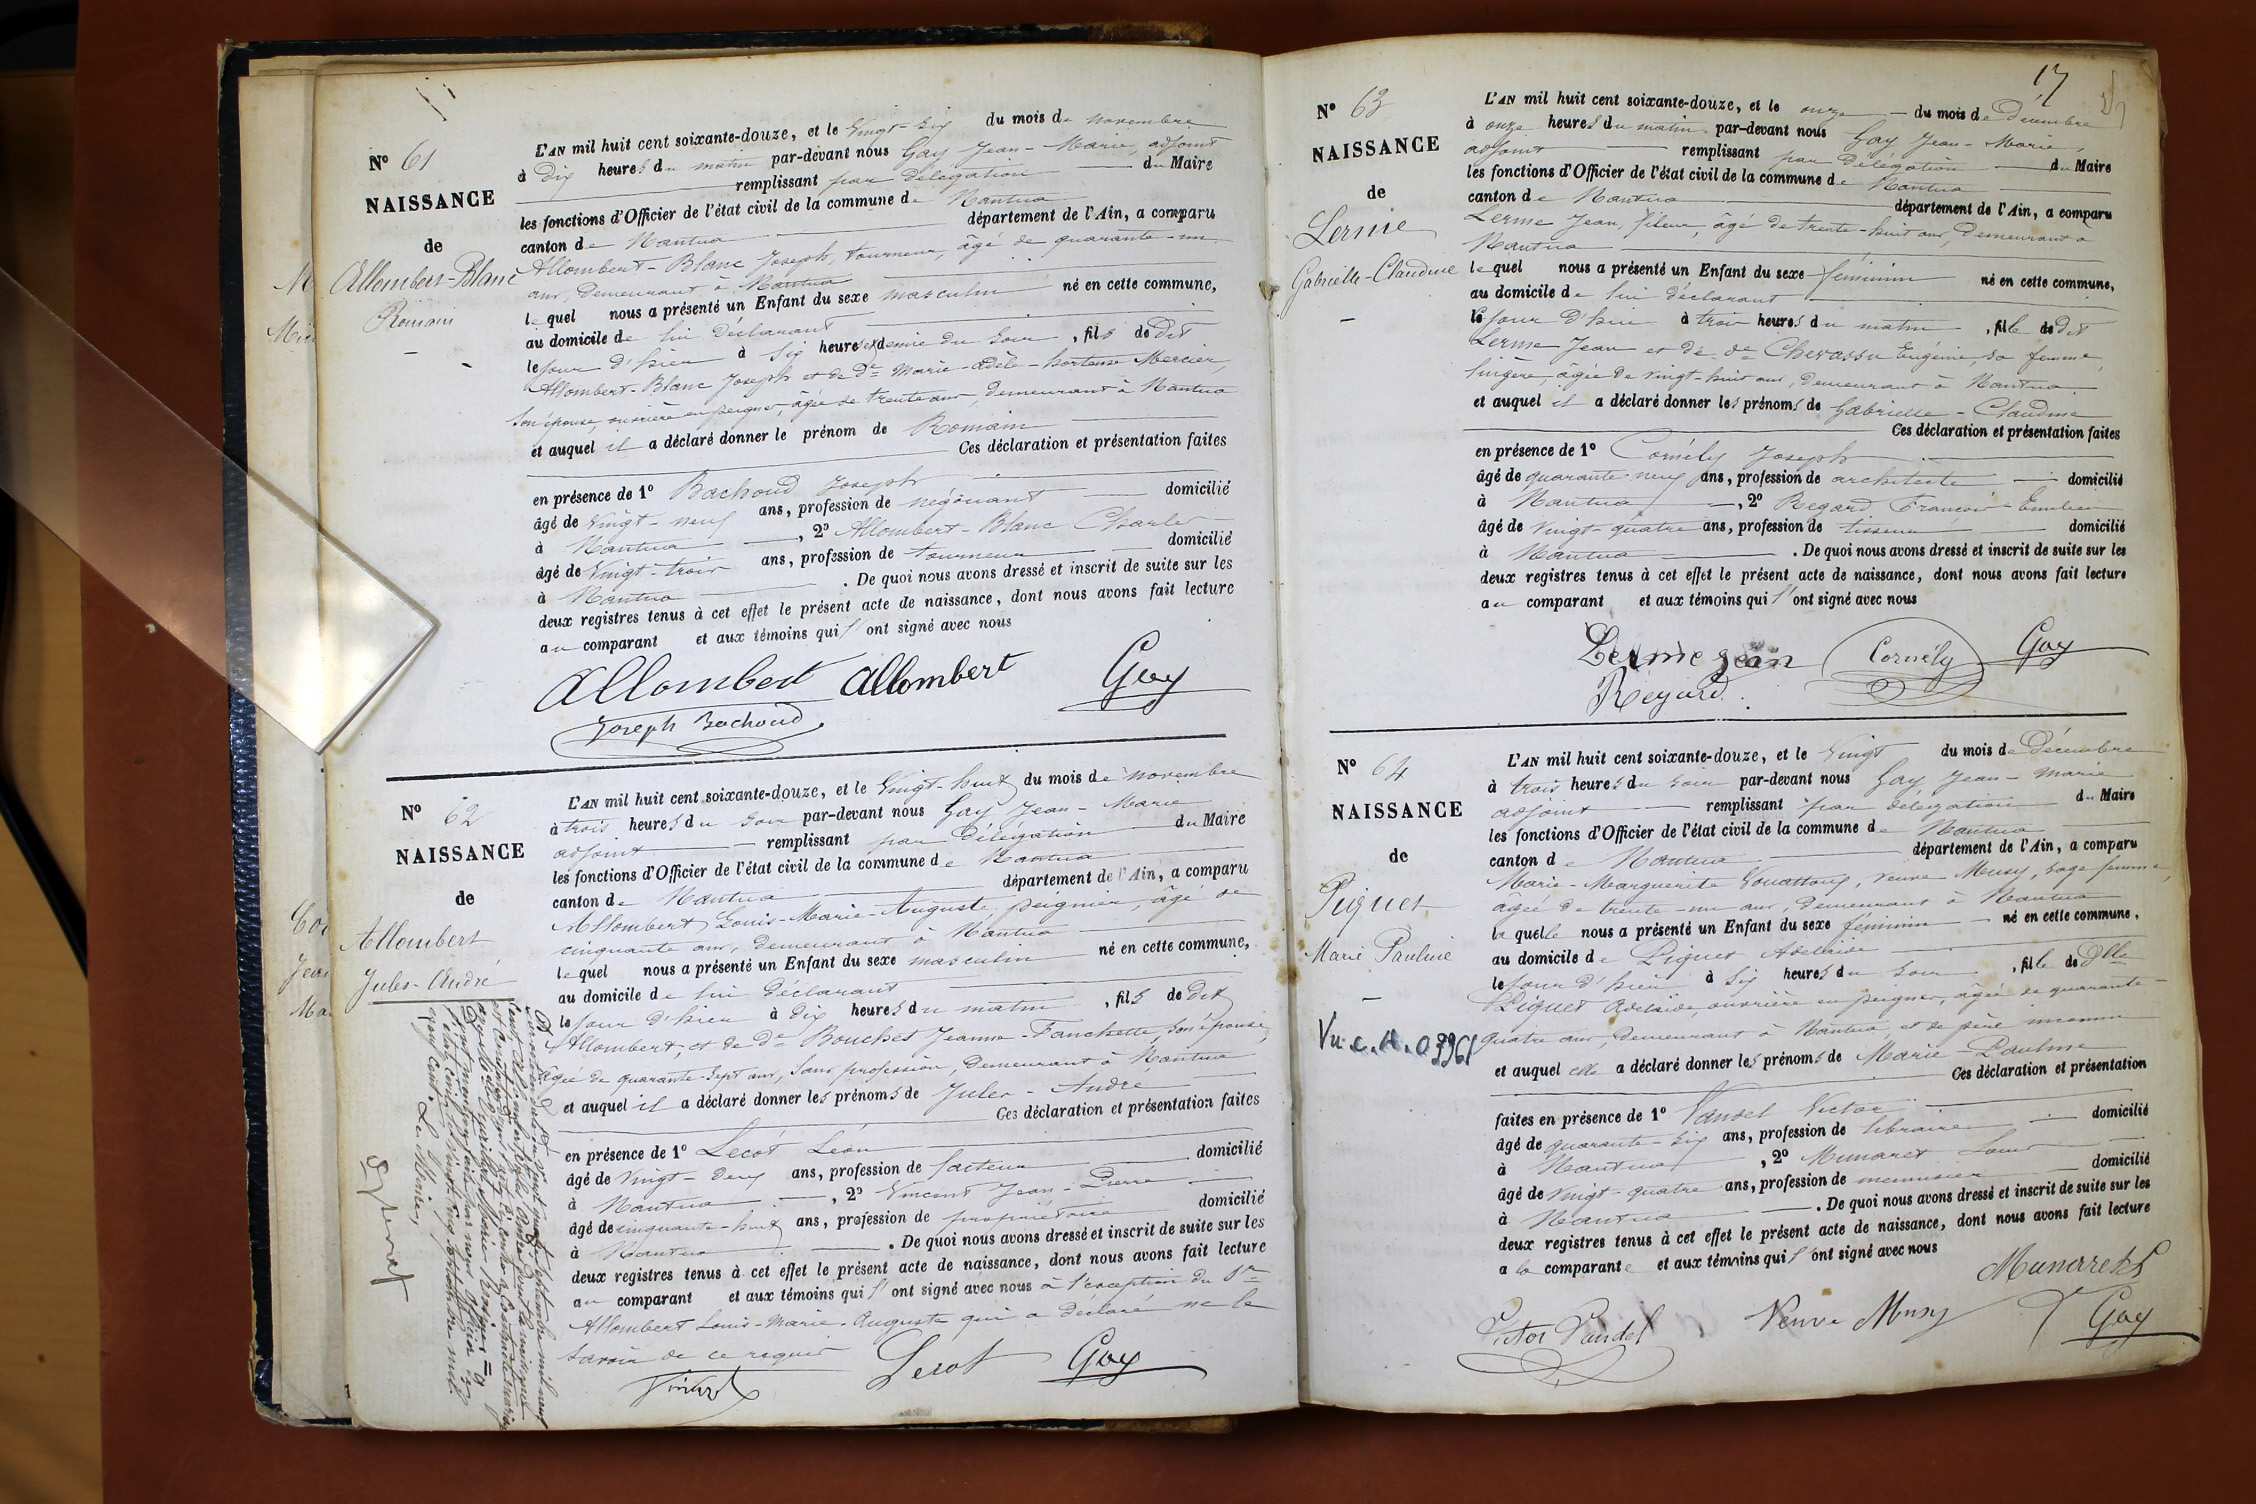 N° 61
NAISSANCE
de
Allombert-Blanc
Romain
L'AN mil huit cent soixante-douze, et le Vingt-six du mois de novembre
à Dix heures du matin par-devant nous Gay Jean-Marie, adjoint
remplissant par délégation du Maire
les fonctions d'Officier de l'état civil de la commune de Nantua
canton de Nantua département de l'Ain, a comparu
Allombert-Blanc Joseph, tourneur, âgé de quarante-un
ans, demeurant à Nantua
lequel nous a présenté un Enfant du sexe masculin né en cette commune,
au domicile de lui déclarant
le jour d'hier à six heures et demie du soir, fils de Dit
Allombert-Blanc Joseph et de De Marie-Adèle-hortense Mercier,
son épouse, ouvrière en peignes, âgée de trente ans demeurant à Nantua
et auquel il a déclaré donner le prénom de Romain
Ces déclaration et présentation faites
en présence de 1° Bachoud Joseph
âgé de Vingt-neuf ans, profession de négociant domicilié
à Nantua, 2° Allombert-Blanc Charles
âgé de Vingt-trois ans, profession de tourneur domicilié
à Nantua. De quoi nous avons dressé et inscrit de suite sur les
deux registres tenus à cet effet le présent acte de naissance, dont nous avons fait lecture
au comparant et aux témoins qui l'ont signé avec nous
Allombert Allombert Gay
Joseph Bachoud
N° 62
NAISSANCE
de
Allombert
Jules-André
L'AN mil huit cent soixante-douze, et le Vingt-huit du mois de novembre
à trois heures du soir par-devant nous Gay Jean-Marie
adjoint remplissant par délégation du Maire
les fonctions d'Officier de l'état civil de la commune de Nantua
canton de Nantua département de l'Ain, a comparu
Allombert Louis-Marie-Auguste peignier, âgé de
cinquante ans, demeurant à Nantua
lequel nous a présenté un Enfant du sexe masculin né en cette commune,
au domicile de lui déclarant
le jour d'hier à dix heures du matin, fils de Dit
Allombert, et de De Bouchet Jeanne-Fanchette, son épouse,
âgée de quarante-sept ans, sans profession, demeurant à Nantua
et auquel il a déclaré donner les prénoms de Jules-André
Ces déclaration et présentation faites
en présence de 1° Lecot Léon
âgé de Vingt-deux ans, profession de facteur domicilié
à Nantua, 2° Vincent Jean-Pierre
âgé de cinquante-huit ans, profession de propriétaire domicilié
à Nantua. De quoi nous avons dressé et inscrit de suite sur les
deux registres tenus à cet effet le présent acte de naissance, dont nous avons fait lecture
au comparant et aux témoins qui l'ont signé avec nous à l'exception du Sr
Allombert Louis-Marie-Auguste qui a déclaré ne le
savoir de ce requis
Vincent Lecot Gay
Le Maire,
17
N° 63
NAISSANCE
de
Lerme
Gabrielle-Claudine
L'AN mil huit cent soixante-douze, et le onze du mois de Décembre
à onze heures du matin par-devant nous Gay Jean-Marie,
adjoint remplissant par délégation du Maire
les fonctions d'Officier de l'état civil de la commune de Nantua
canton de Nantua département de l'Ain, a comparu
Lerme Jean, fileur, âgé de trente-huit ans, demeurant à
Nantua
lequel nous a présenté un Enfant du sexe féminin né en cette commune,
au domicile de lui déclarant
le jour d'hier à trois heures du matin, fille de Dit
Lerme Jean et de De Chevassu Eugénie, sa femme,
lingère, âgée de vingt-huit ans, demeurant à Nantua
et auquel il a déclaré donner les prénoms de Gabrielle-Claudine
Ces déclaration et présentation faites
en présence de 1° Cornély Joseph
âgé de quarante-neuf ans, profession de architecte domicilié
à Nantua, 2° Regard François-Emilien
âgé de Vingt-quatre ans, profession de tisseur domicilié
à Nantua. De quoi nous avons dressé et inscrit de suite sur les
deux registres tenus à cet effet le présent acte de naissance, dont nous avons fait lecture
au comparant et aux témoins qui l'ont signé avec nous
Lerme jean Cornély Gay
Regard
N° 64
NAISSANCE
de
Piquet
Marie Pauline
L'AN mil huit cent soixante-douze, et le Vingt du mois de Décembre
à trois heures du soir par-devant nous Gay Jean-Marie
adjoint remplissant par délégation du Maire
les fonctions d'Officier de l'état civil de la commune de Nantua
canton de Nantua département de l'Ain, a comparu
Marie-Marguerite veuve Musy, sage femme,
âgée de trente-un ans, demeurant à Nantua
laquelle nous a présenté un Enfant du sexe féminin né en cette commune,
au domicile de Piquet Adélaïde
le jour d'hier à six heures du soir, fille de Dlle
Piquet Adélaïde, ouvrière en peignes, âgée de quarante-
quatre ans, demeurant à Nantua, et de père inconnu
et auquel elle a déclaré donner les prénoms de Marie-Pauline
Ces déclaration et présentation
faites en présence de 1° Vandel Victor
âgé de quarante-six ans, profession de libraire domicilié
à Nantua, 2° Munaret Louis
âgé de Vingt-quatre ans, profession de menuisier domicilié
à Nantua. De quoi nous avons dressé et inscrit de suite sur les
deux registres tenus à cet effet le présent acte de naissance, dont nous avons fait lecture
à la comparante et aux témoins qui l'ont signé avec nous
Victor Vandel Veuve Musy Gay